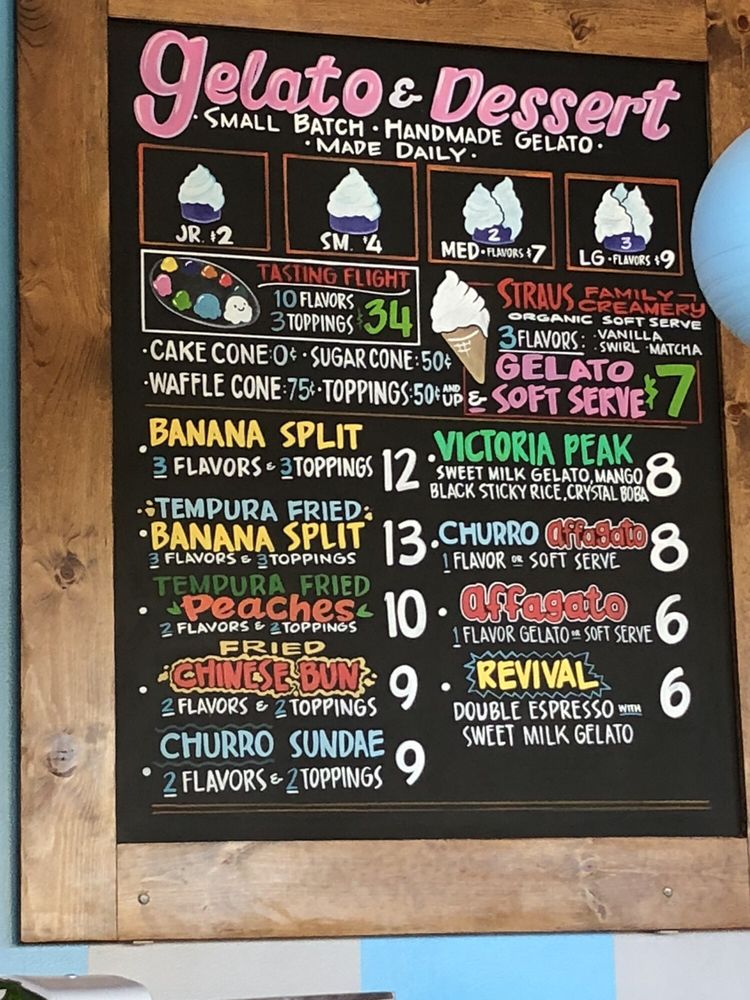 gelato & Dessert
· SMALL BATCH · HANDMADE GELATO ·
· MADE DAILY ·
JR. $2
SM. $4
2
MED · FLAVORS $7
3
LG · FLAVORS $9
TASTING FLIGHT
10 FLAVORS
3 TOPPINGS $34
STRAUS FAMILY CREAMERY
ORGANIC SOFT SERVE
3 FLAVORS: · VANILLA
· SWIRL · MATCHA
GELATO
& SOFT SERVE $7
· CAKE CONE: 0¢ · SUGAR CONE: 50¢
· WAFFLE CONE: 75¢ · TOPPINGS: 50¢ AND UP
· BANANA SPLIT
3 FLAVORS & 3 TOPPINGS 12
TEMPURA FRIED
· BANANA SPLIT
3 FLAVORS & 3 TOPPINGS 13
TEMPURA FRIED
· Peaches
2 FLAVORS & 2 TOPPINGS 10
FRIED
· CHINESE BUN
2 FLAVORS & 2 TOPPINGS 9
CHURRO SUNDAE
· 2 FLAVORS & 2 TOPPINGS 9
· VICTORIA PEAK
SWEET MILK GELATO, MANGO
BLACK STICKY RICE, CRYSTAL BOBA 8
· CHURRO affagato
1 FLAVOR OR SOFT SERVE 8
· affagato
1 FLAVOR GELATO OR SOFT SERVE 6
· REVIVAL
DOUBLE ESPRESSO WITH
SWEET MILK GELATO 6